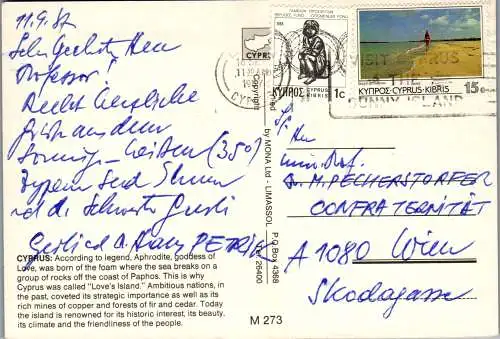 11.9.87
Sehr geehrter Herr
Professor!
Recht herzliche
Grüße aus dem
sonnig-heißen (35°)
Zypern sendet Ihnen
und der Schwester Gusti
Gerlind u. Harry PETRIK
CYPRUS: According to legend, Aphrodite, goddess of
Love, was born of the foam where the sea breaks on a
group of rocks off the coast of Paphos. This is why
Cyprus was called "Love's Island." Ambitious nations, in
the past, coveted its strategic importance as well as its
rich mines of copper and forests of fir and cedar. Today
the island is renowned for its historic interest, its beauty,
its climate and the friendliness of the people.
M 273
Copyright by MONA Ltd - LIMASSOL P.O.Box 4368
26400
CYPR
1c
ΚΥΠΡΟΣ
CYPRUS
KIBRIS
ΚΥΠΡΟΣ·CYPRUS·KIBRIS 15c
VISIT CYPRUS
THE
SUNNY ISLAND
Herrn
Univ. Prof.
Dr. M. PECHERSTORFER
CONFRATERNITÄT
A 1080 Wien
Skodagasse